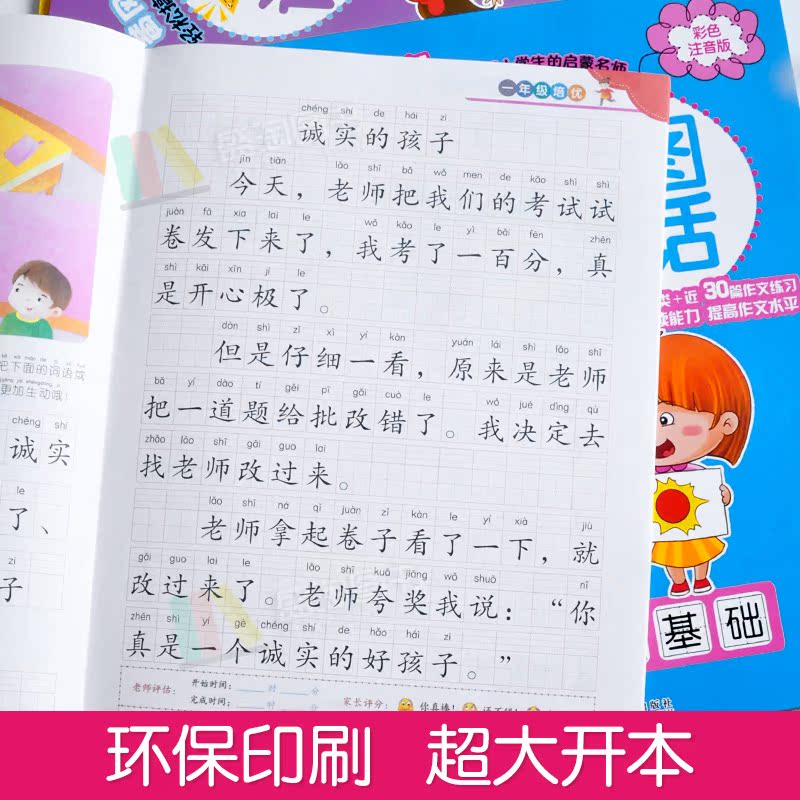 彩色
注音版
学生的启蒙名师
一年级培优
chéng shí de hái zi
诚实的孩子
jīn tiān lǎo shī bǎ wǒ men de kǎo shì shì
今天，老师把我们的考试试
juàn fā xia lai le wǒ kǎo le yì bǎi fēn zhēn
卷发下来了，我考了一百分，真
shì kāi xīn jí le
是开心极了。
dàn shì zǐ xì yí kàn yuán lái shì lǎo shī
但是仔细一看，原来是老师
bǎ yí dào tí gěi pī gǎi cuò le wǒ jué dìng qù
把一道题给批改错了。我决定去
zhǎo lǎo shī gǎi guo lai
找老师改过来。
lǎo shī ná qǐ juàn zi kàn le yí xià jiù
老师拿起卷子看了一下，就
gǎi guo lai le lǎo shī kuā jiǎng wǒ shuō nǐ
改过来了。老师夸奖我说：“你
zhēn shì yí gè chéng shí de hǎo hái zi
真是一个诚实的好孩子。”
老师评估：
开始时间： 时 分
完成时间： 时 分
家长评分： 你真棒！ 还不错！
把下面的词语或
更加生动哦！
chéng shí
诚实
le
了、
zi
子
话
类+近30篇作文练习
读能力 提高作文水平
基础
环保印刷 超大开本